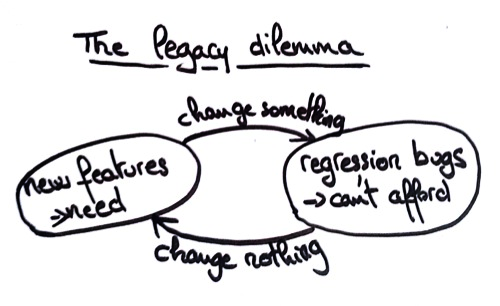 The legacy dilemma
change something
new features
→need
regression bugs
→can't afford
change nothing